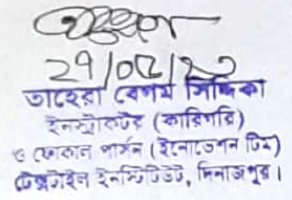 তাহেরা বেগম সিদ্দিকা
ইনস্ট্রাক্টর (কারিগরি)
ও ফোকাল পার্সন (ইনোভেশন টিম)
টেক্সটাইল ইনস্টিটিউট, দিনাজপুর।